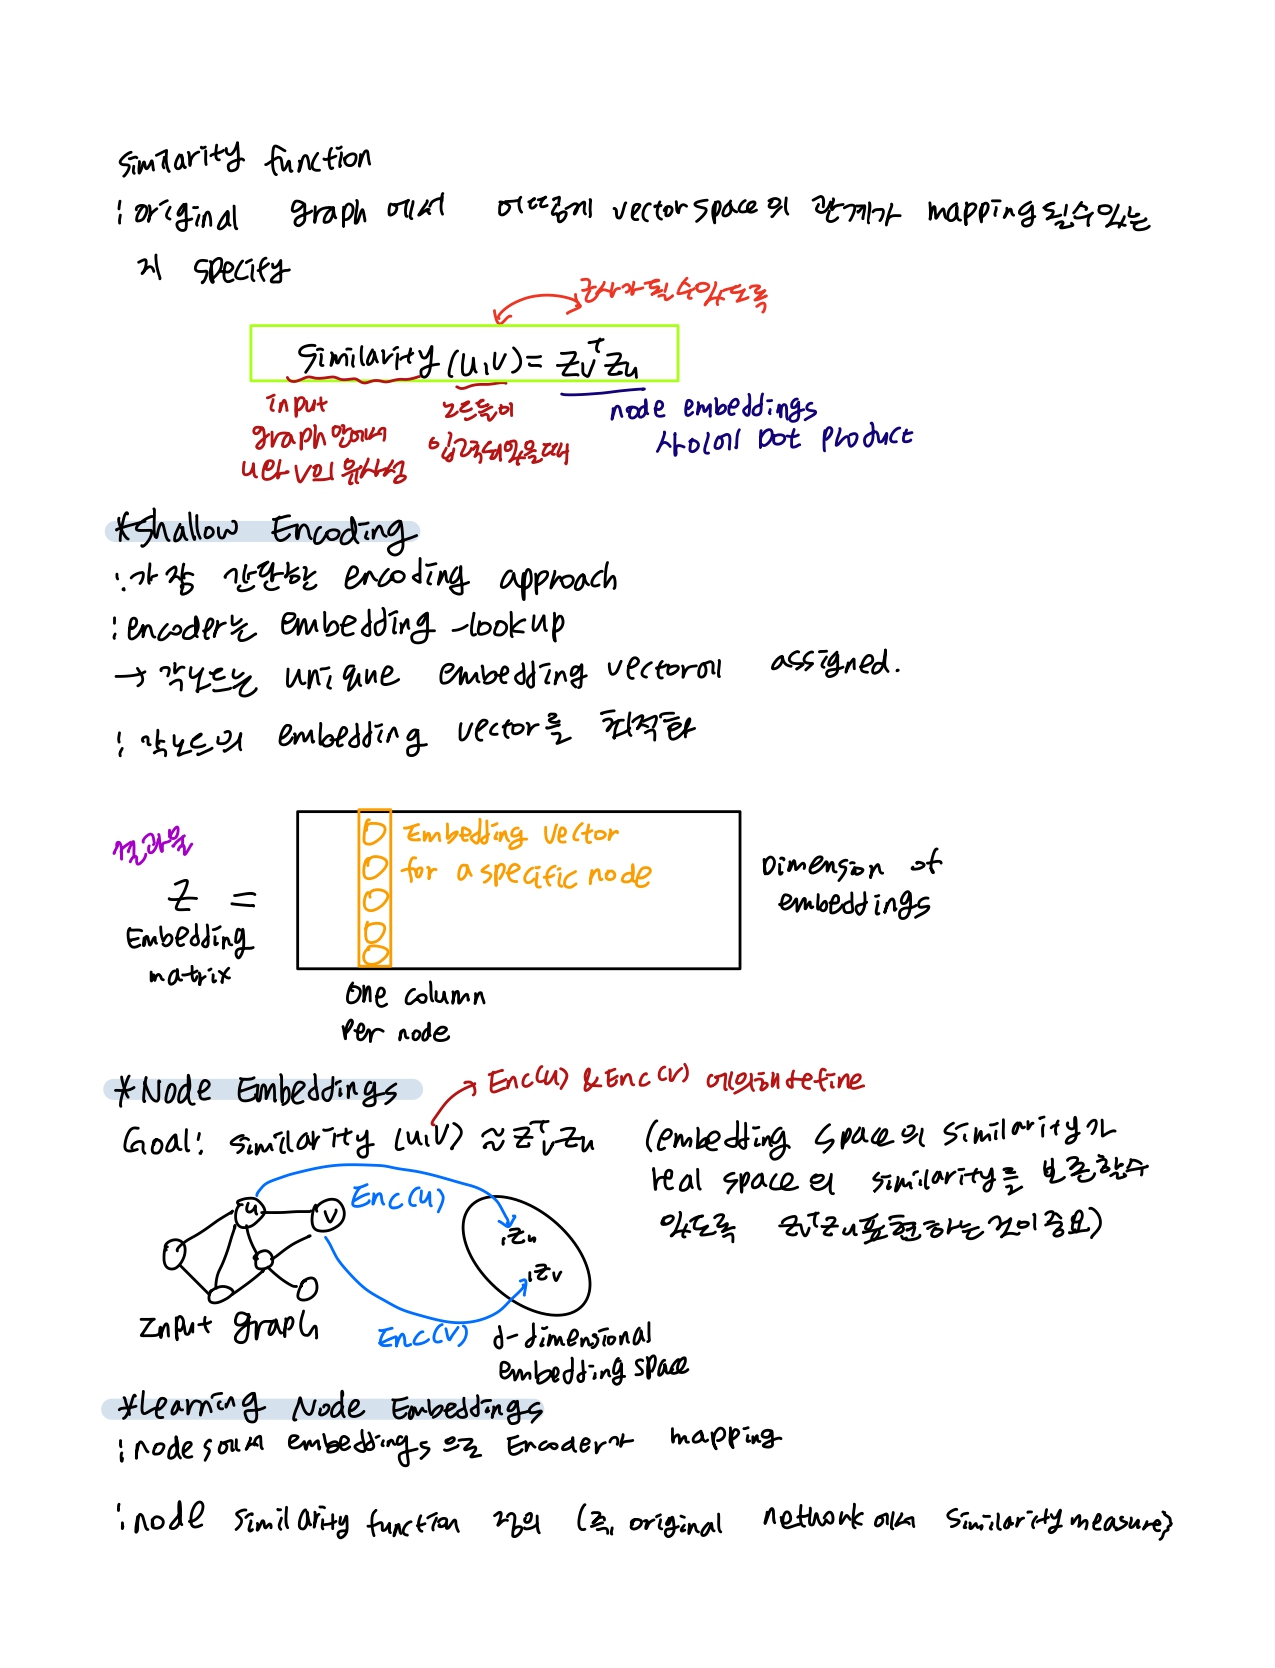 Similarity function
: original graph 에서 어떻게 vector space의 관계가 mapping될수있는
지 specify
근사가될수있도록
Similarity (u,v) = Zv^T Zu
input
graph 안에서
u와 v의 유사성
노드들이
입력되어있을때
node embeddings
사이에 Dot product
*Shallow Encoding
: 가장 간단한 encoding approach
: encoder는 embedding -lookup
→ 각노드는 unique embedding vector에 assigned.
: 각노드의 embedding vector를 최적화
결과물
Z =
Embedding
matrix
Embedding vector
for a specific node
Dimension of
embeddings
One column
Per node
*Node Embeddings
Enc(u) & Enc(v) 에의해define
Goal: similarity (u,v) ≈ Zv^T Zu (embedding space의 similarity가
real space의 similarity를 보존할수
있도록 Zv^T Zu표현하는것이중요)
Enc(u)
u
v
Zu
Zv
Input graph
Enc(v)
d-dimensional
embedding space
*Learning Node Embeddings
: nodes에서 embeddings으로 Encoder가 mapping
: node similarity function 정의 (즉, original network에서 similarity measure)